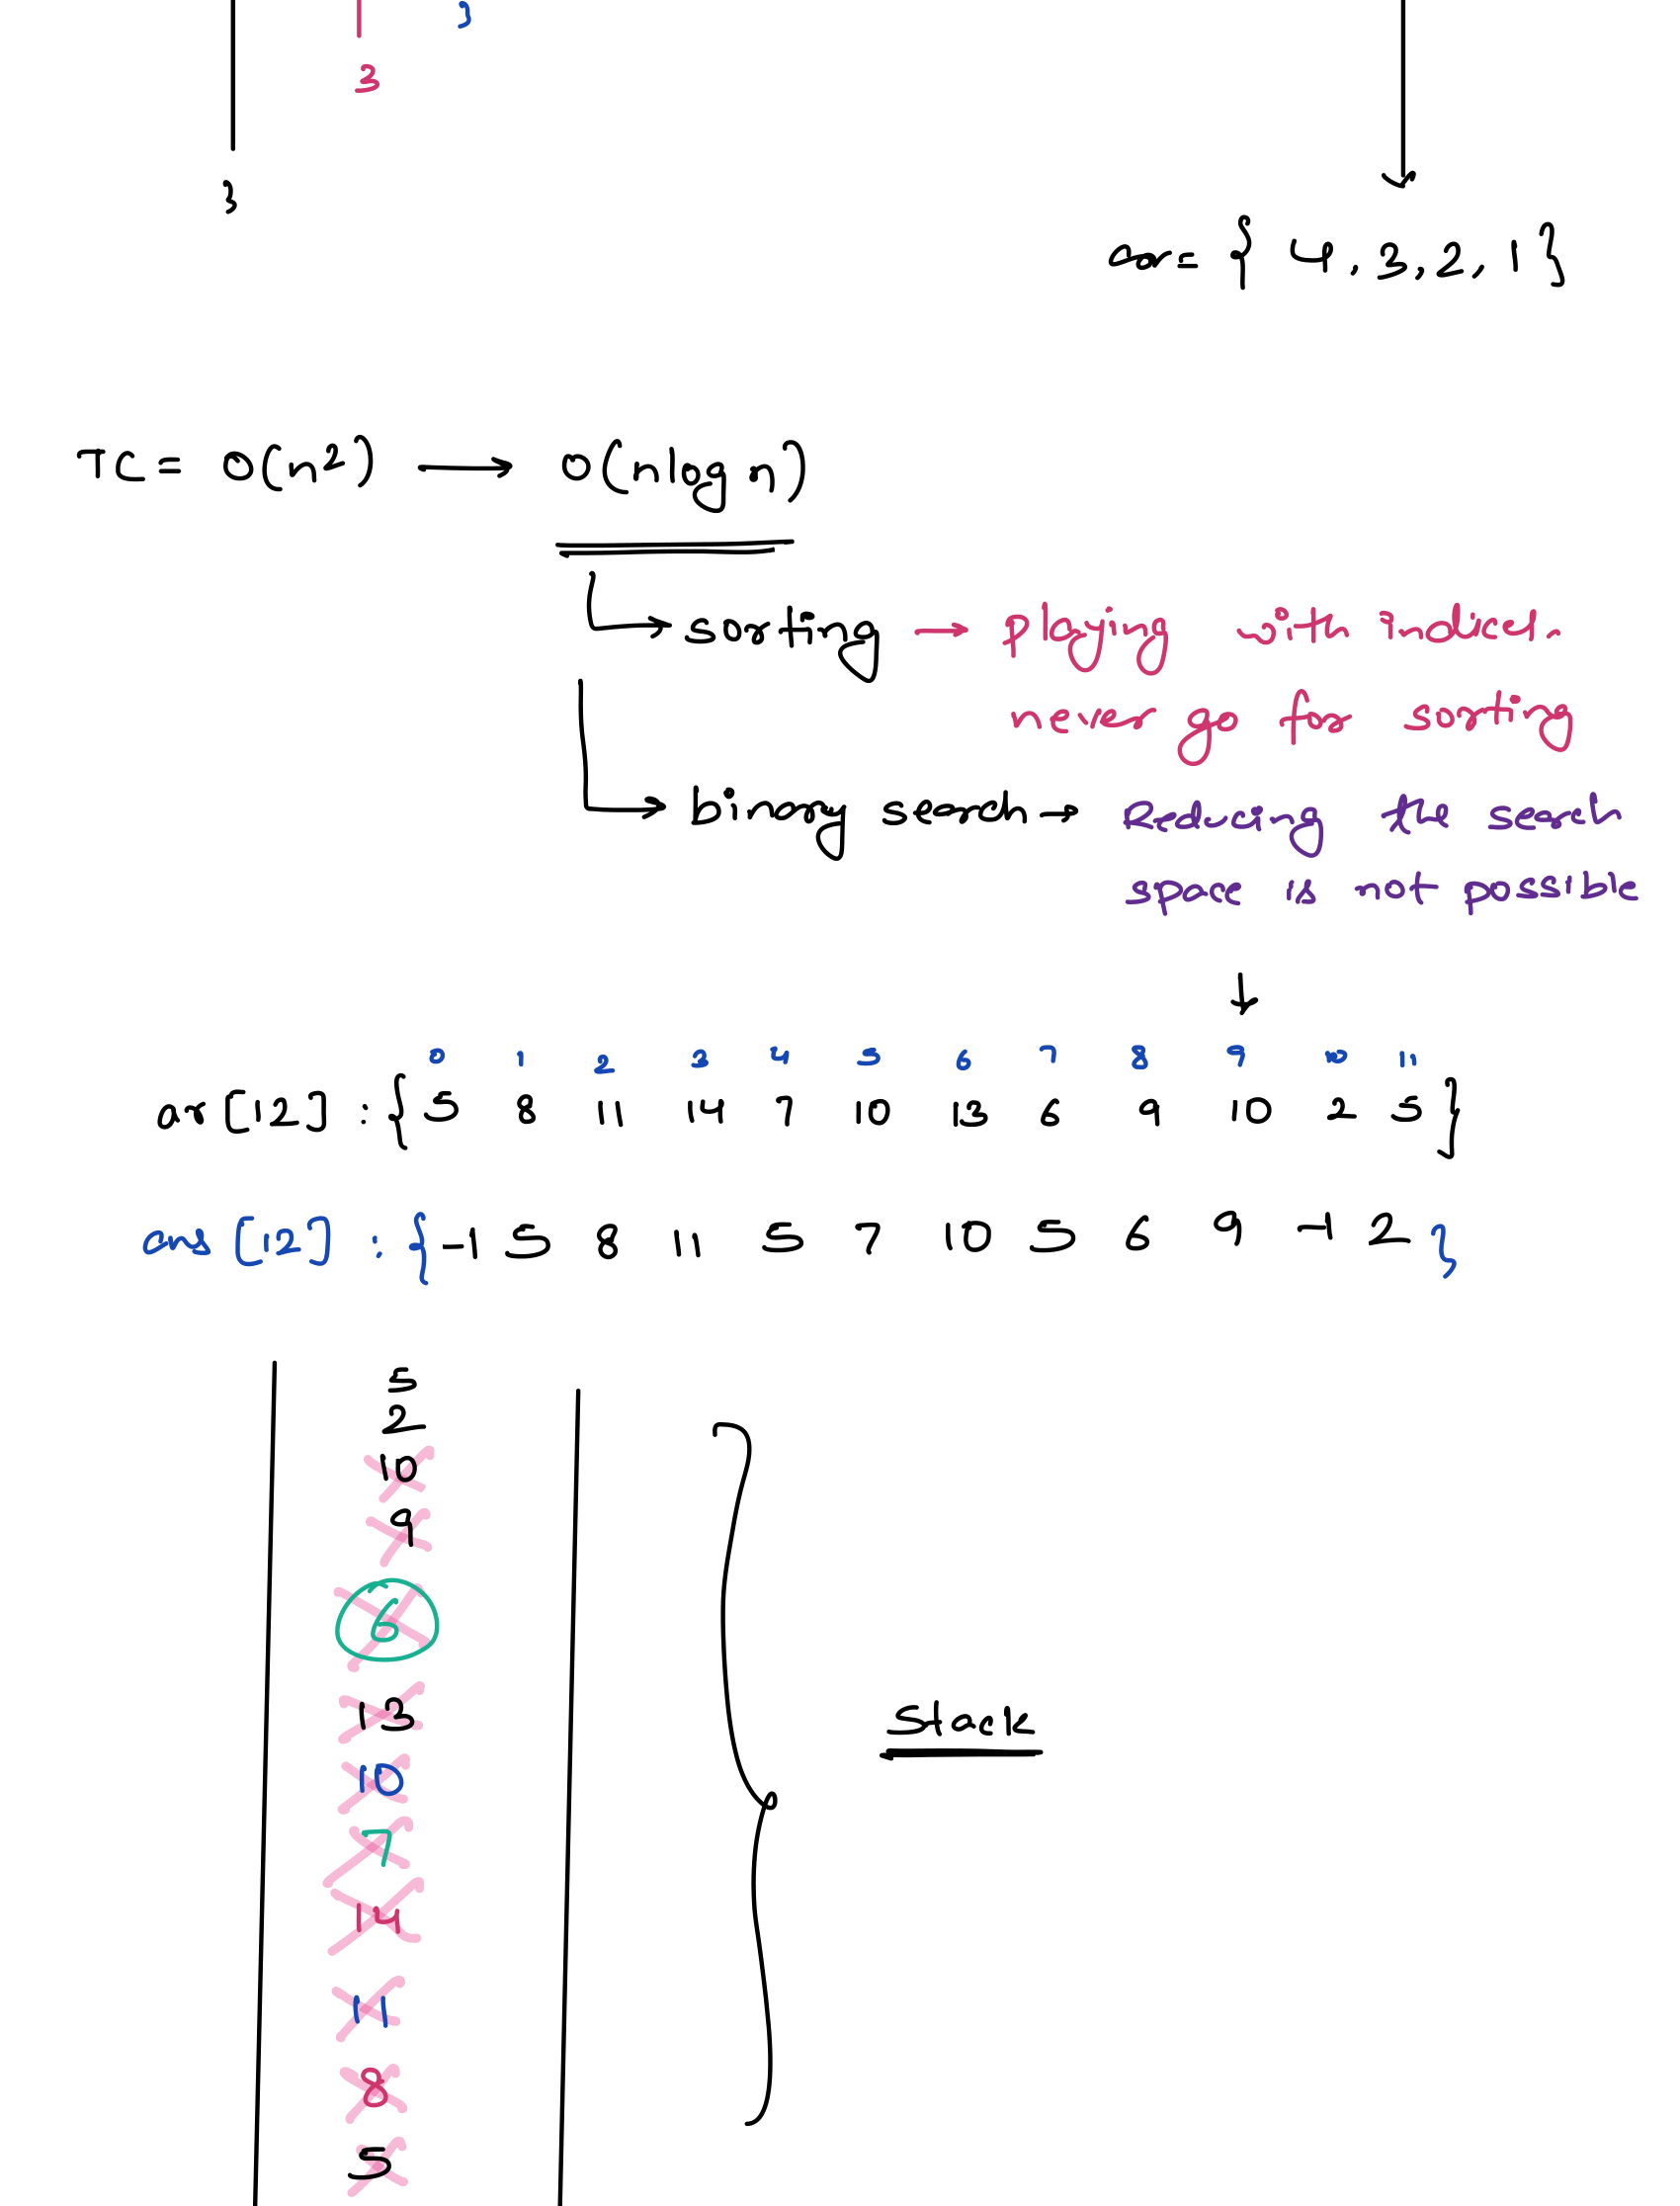 }
}
}
ar= { 4, 3, 2, 1 }
TC = O(n2) → O(nlog n)
sorting → playing with indices.
never go for sorting
binary search → Reducing the search
space is not possible
↓
0 1 2 3 4 5 6 7 8 9 10 11
ar[12] : { 5 8 11 14 7 10 13 6 9 10 2 5 }
ans [12] : { -1 5 8 11 5 7 10 5 6 9 -1 2 }
5
2
10
9
6
13
Stack
10
7
14
11
8
5